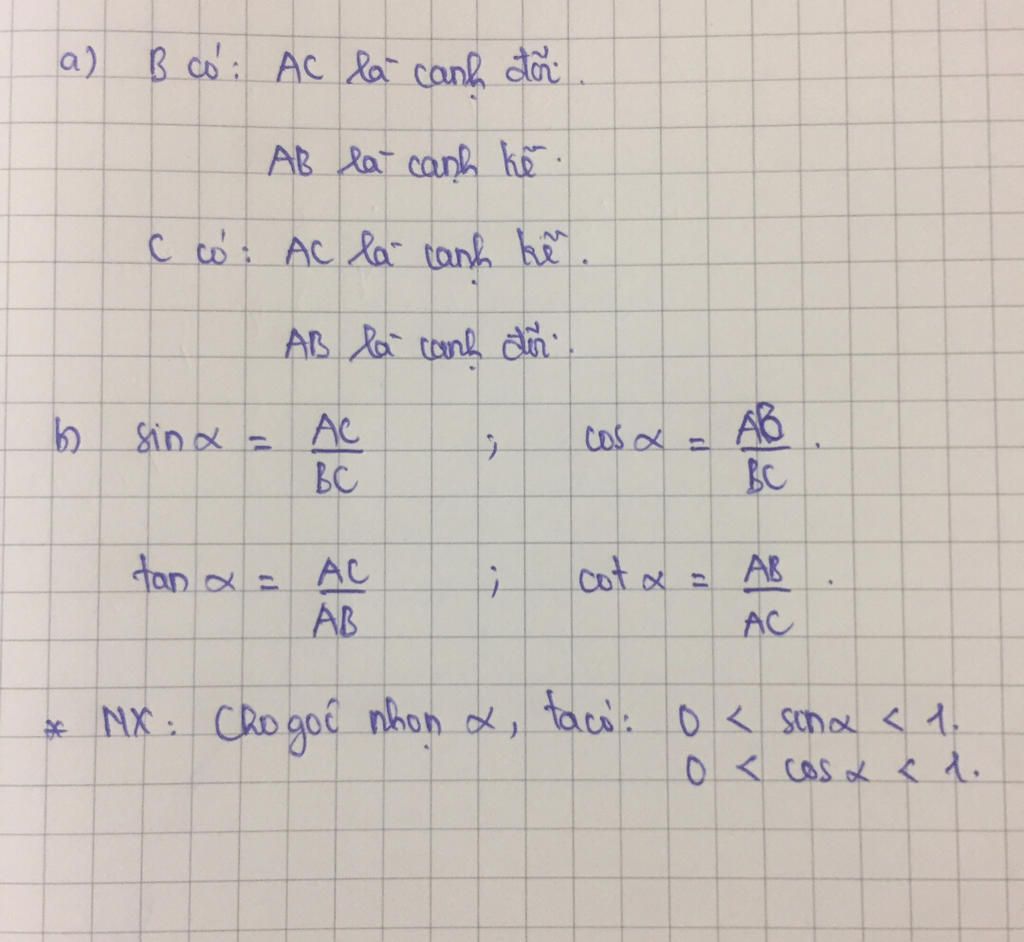 a) B có: AC là cạnh đối.
AB là cạnh kề.
C có: AC là cạnh kề.
AB là cạnh đối.
b) sin α = AC/BC ; cos α = AB/BC.
tan α = AC/AB ; cot α = AB/AC.
* NX: Cho góc nhọn α, ta có: 0 < sin α < 1.
0 < cos α < 1.